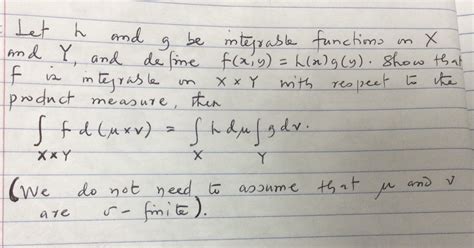 Let h and g be integrable functions on X
and Y, and define f(x,y) = h(x)g(y). Show that
f is integrable on X x Y with respect to the
product measure, then
∫ f d(μ×ν) = ∫ h dμ ∫ g dν.
X×Y X Y
(We do not need to assume that μ and ν
are σ-finite).